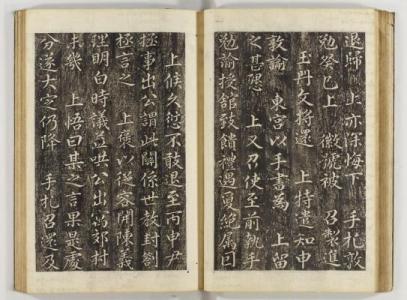 退歸 上亦深悔下 手札敦
勉答已上 徽號被 召製進
玉冊文將還 上特遣知申
敦諭 東宮以手書爲 上留
之甚懇 上又召使至前執手
勉諭授館致餽禮遇夐絶属因
上候久愆不敢退至丙申尹
拯事出公謂此關係世教封劄
極言之 上褒以從容開陳義
理明白時議益哄公出寓郊村
未幾 上悟曰某之言果是處
分遂大定仍降 手札召還及